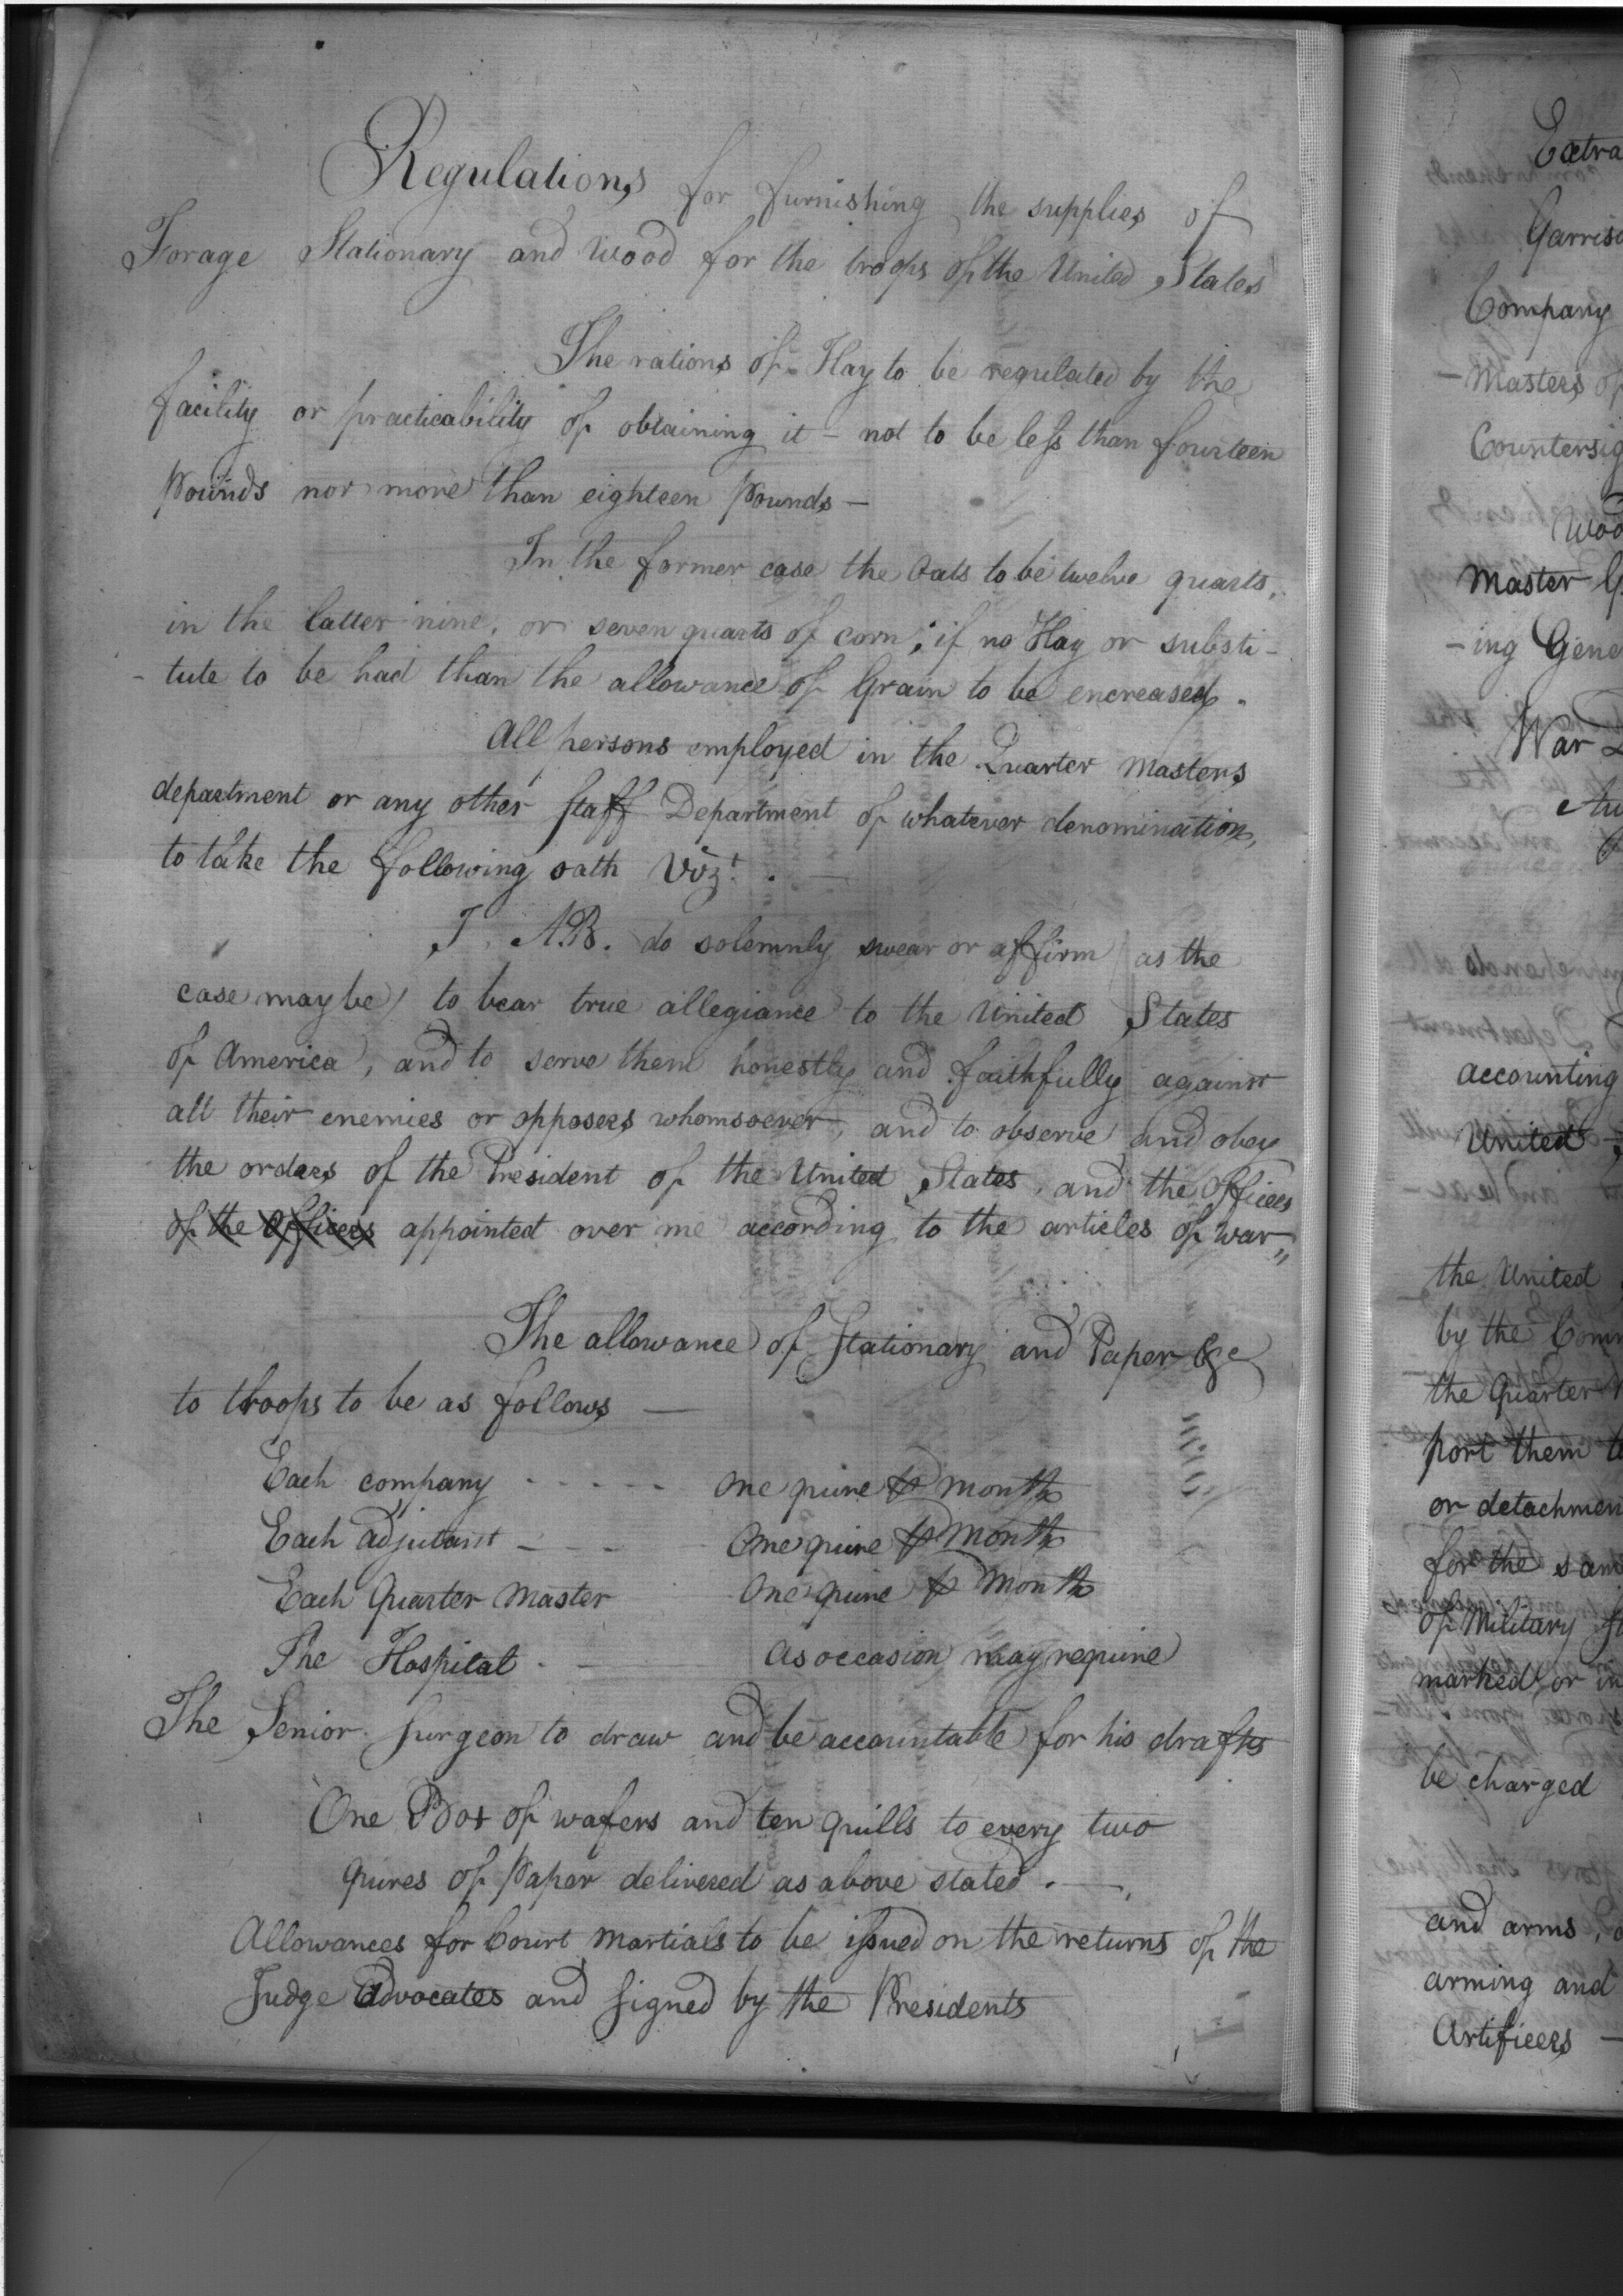 Regulations for furnishing the supplies of
Forage Stationary and Wood for the troops of the United States
The rations of Hay to be regulated by the
facility or practicability of obtaining it - not to be less than fourteen
Pounds nor more than eighteen Pounds -
In the former case the Oats to be twelve quarts,
in the latter nine, or seven quarts of corn; if no Hay or substi-
-tute to be had than the allowance of Grain to be encreased.
All persons employed in the Quarter Masters
department or any other staff Department of whatever denomination,
to take the following oath Vizt.
I, A.B. do solemnly swear or affirm (as the
case may be) to bear true allegiance to the United States
of America, and to serve them honestly and faithfully against
all their enemies or opposers whomsoever, and to observe and obey
the orders of the President of the United States, and the officers
of the officers appointed over me according to the articles of war,,
The allowance of Stationary and Paper &c
to troops to be as follows —
Each company - - - - - One quire ⅌ month
Each adjutant - - - One quire ⅌ month
Each Quarter Master One quire ⅌ Month
The Hospital - — as occasion may require
The Senior Surgeon to draw and be accountable for his drafts
One Box of wafers and ten quills to every two
quires of Paper delivered as above stated . —
Allowances for Court Martials to be issued on the returns of the
Judge Advocates and signed by the Presidents
Extra
Garris
Company
-Masters of
Countersig
Woo
Master G
-ing Gene
War D
Au
accounting
United
the United
by the Com
the Quarter M
port them t
or detachmen
for the sam
of Military St
marked or in
be charged
and arms,
arming and
Artificers —